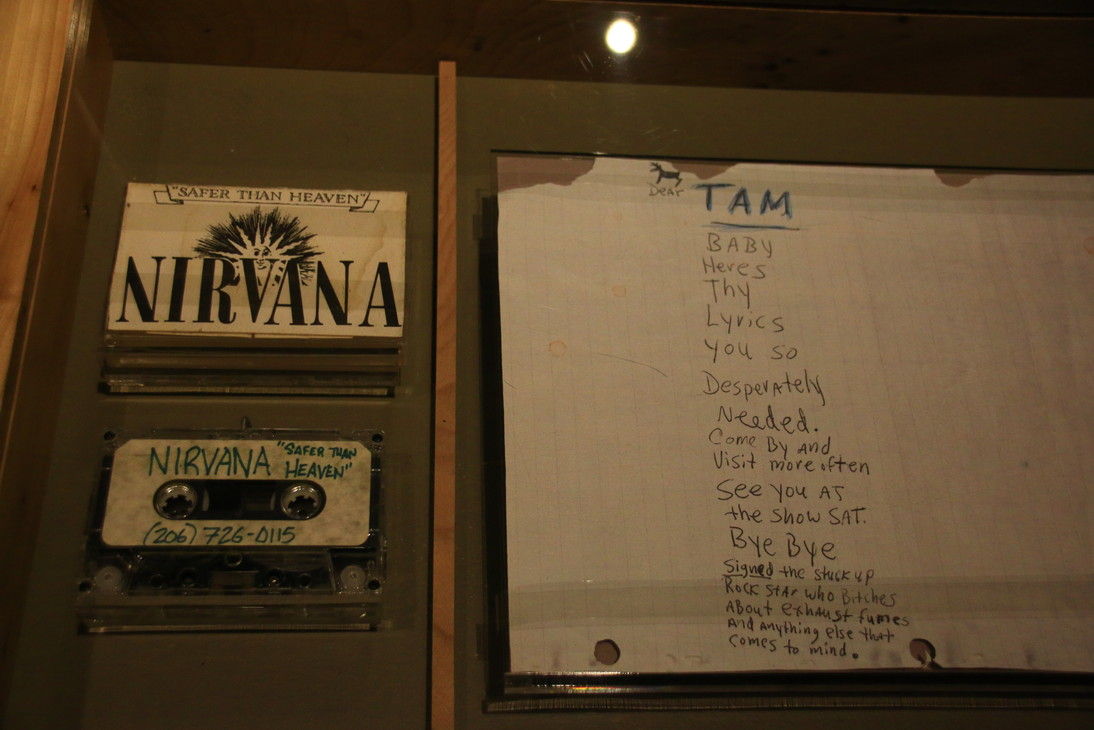 "SAFER THAN HEAVEN"
NIRVANA
NIRVANA "SAFER THAN
HEAVEN"
(206) 726-0115
Dear TAM
BABY
Heres
Thy
Lyrics
You so
Desperately
Needed.
Come By And
Visit more often
See You AT
the show SAT.
Bye Bye
Signed the stuck up
Rock star who Bitches
About exhaust fumes
And anything else that
comes to mind.